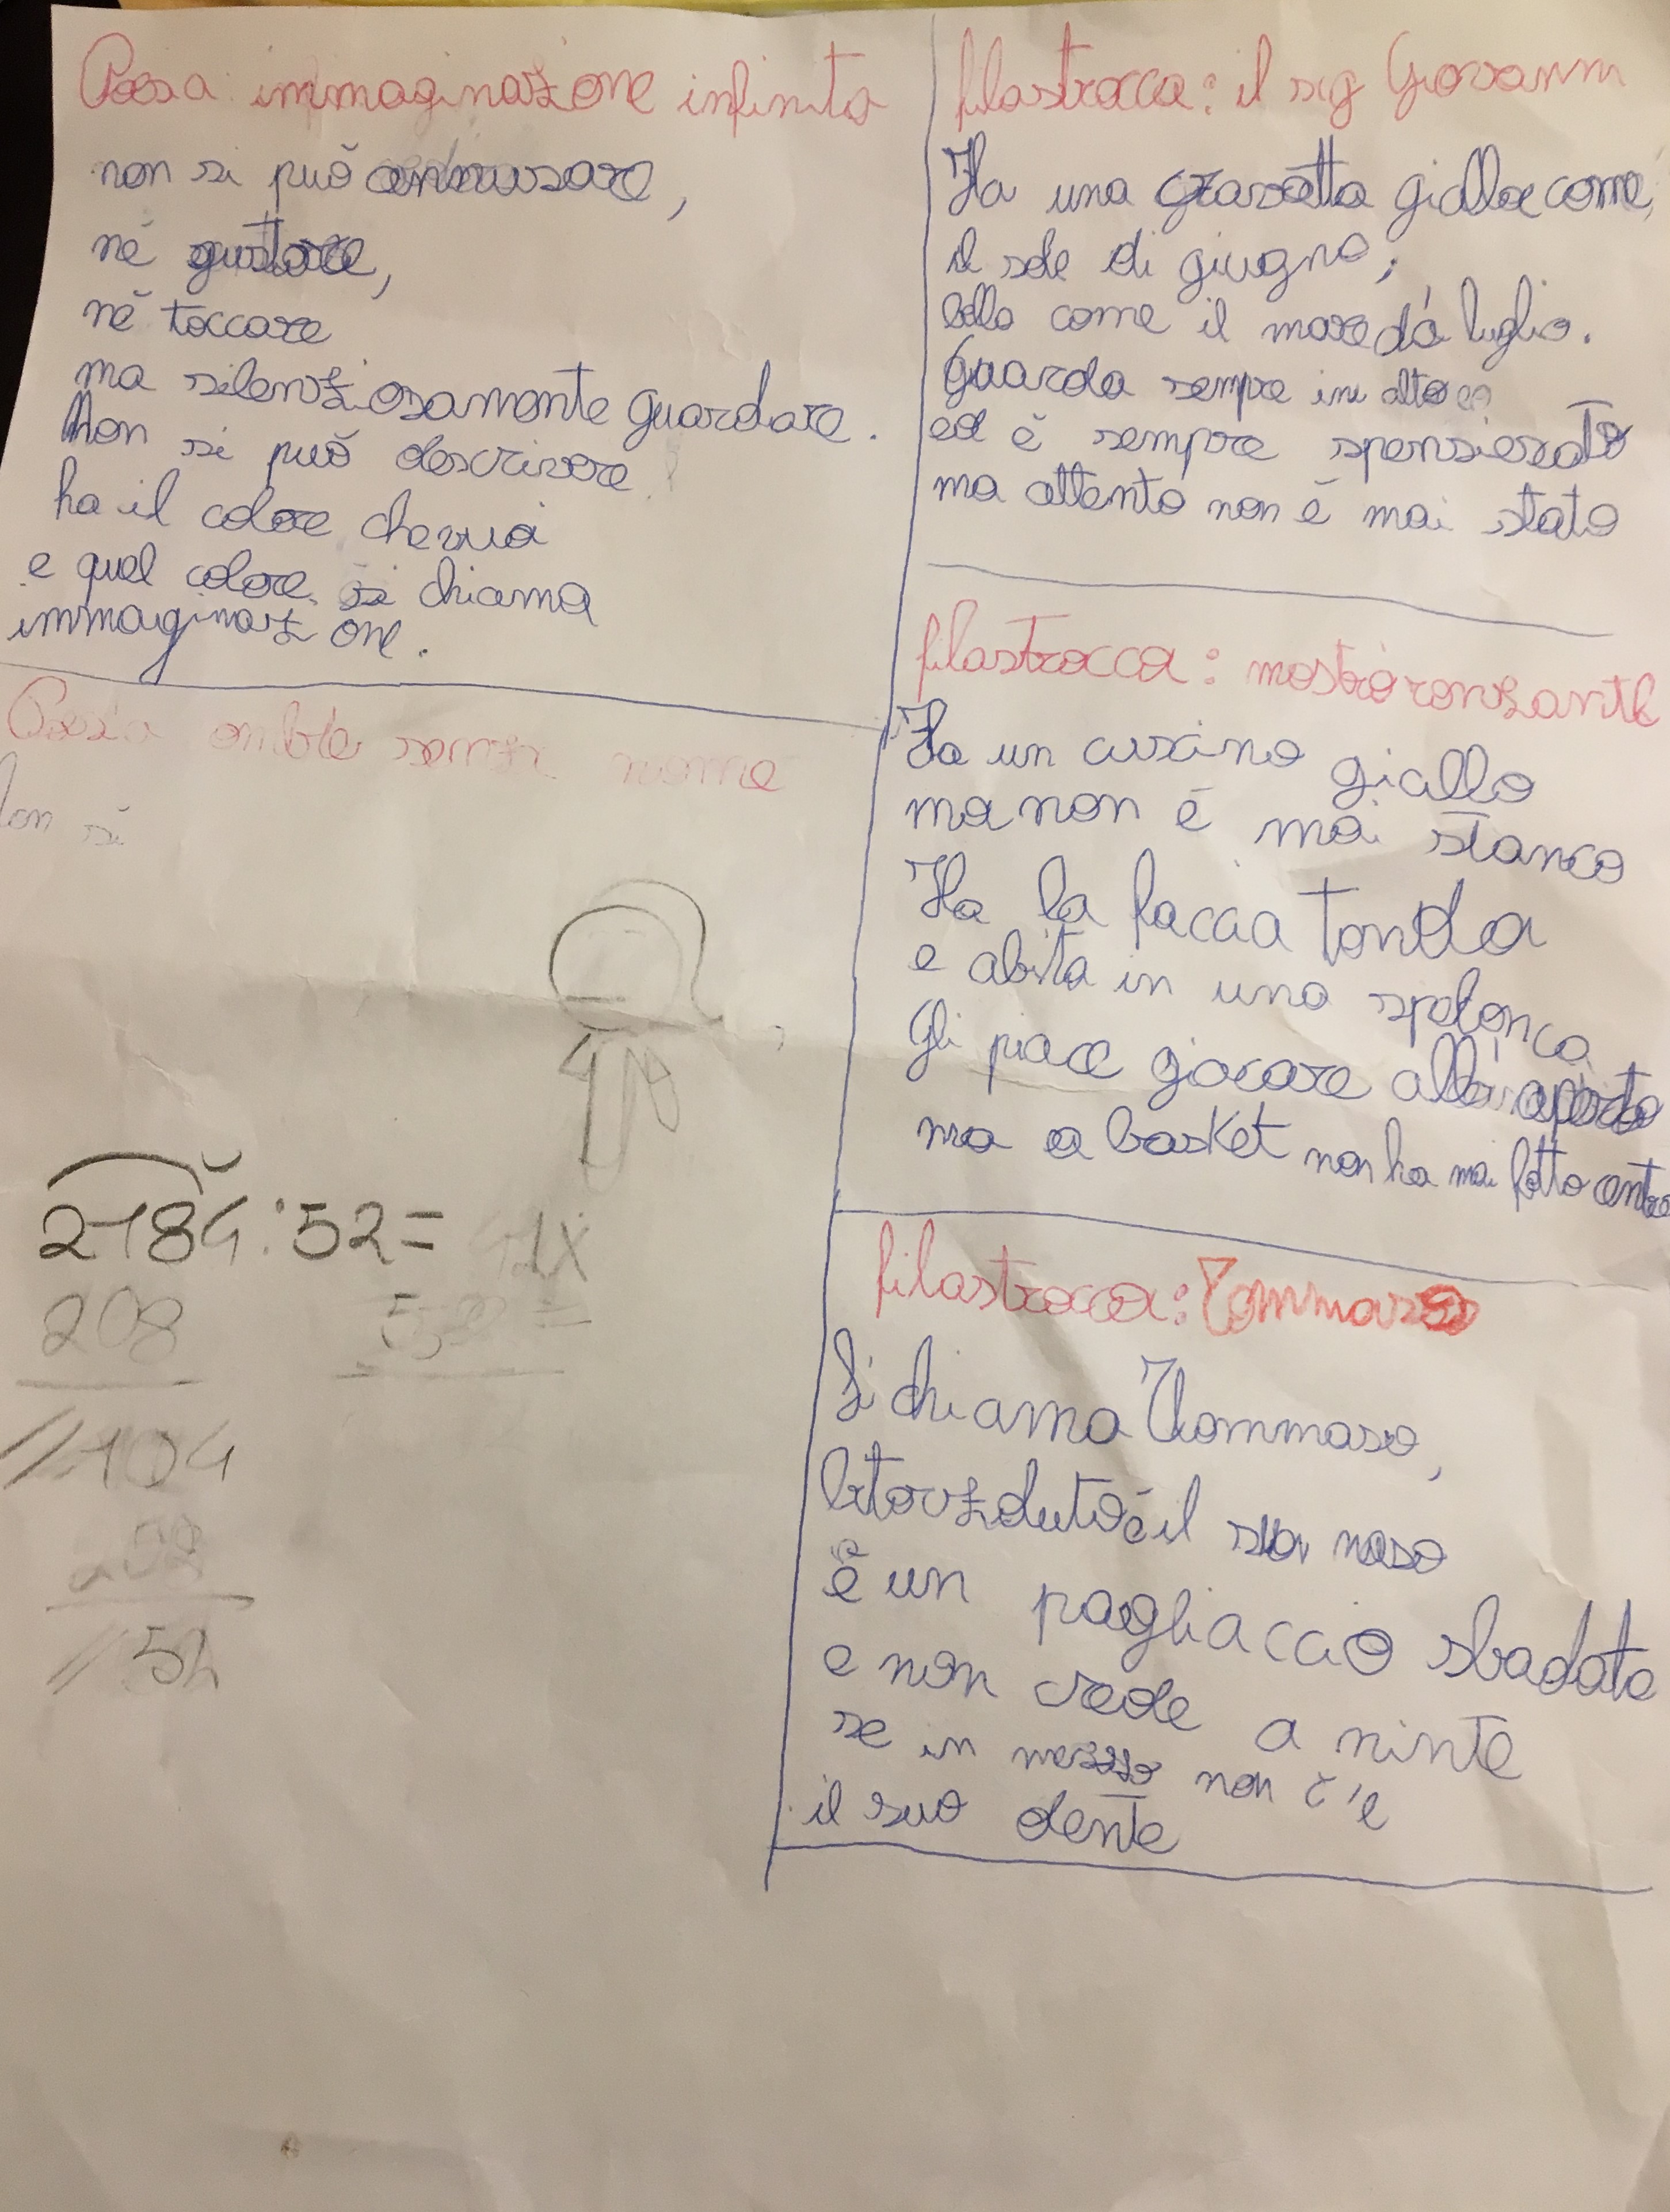 Poesia immaginazione infinita
non si può annusare,
nè gustare,
nè toccare
ma silenziosamente guardare.
Non si può descrivere
ha il colore che vuoi
e quel colore si chiama
immaginazione.
Poesia ombre senza nome
Non si
2184:52=
208
//104
//52
filastrocca: il sig Giovanni
Ha una cravatta gialla come
il sole di giugno,
bella come il mare di luglio.
Guarda sempre in alto
ed è sempre spensierato
ma attento non è mai stato
filastrocca: mostro ronzante
Ha un cuscino giallo
ma non è mai stanco
Ha la faccia tonda
e abita in una spelonca
Gli piace giocare all'aperto
ma a basket non ha mai fatto centro
filastrocca: Tommaso
Si chiama Tommaso,
bitorzoluto è il suo naso
è un pagliaccio sbadato
e non crede a ninte
se in mezzo non c'è
il suo dente